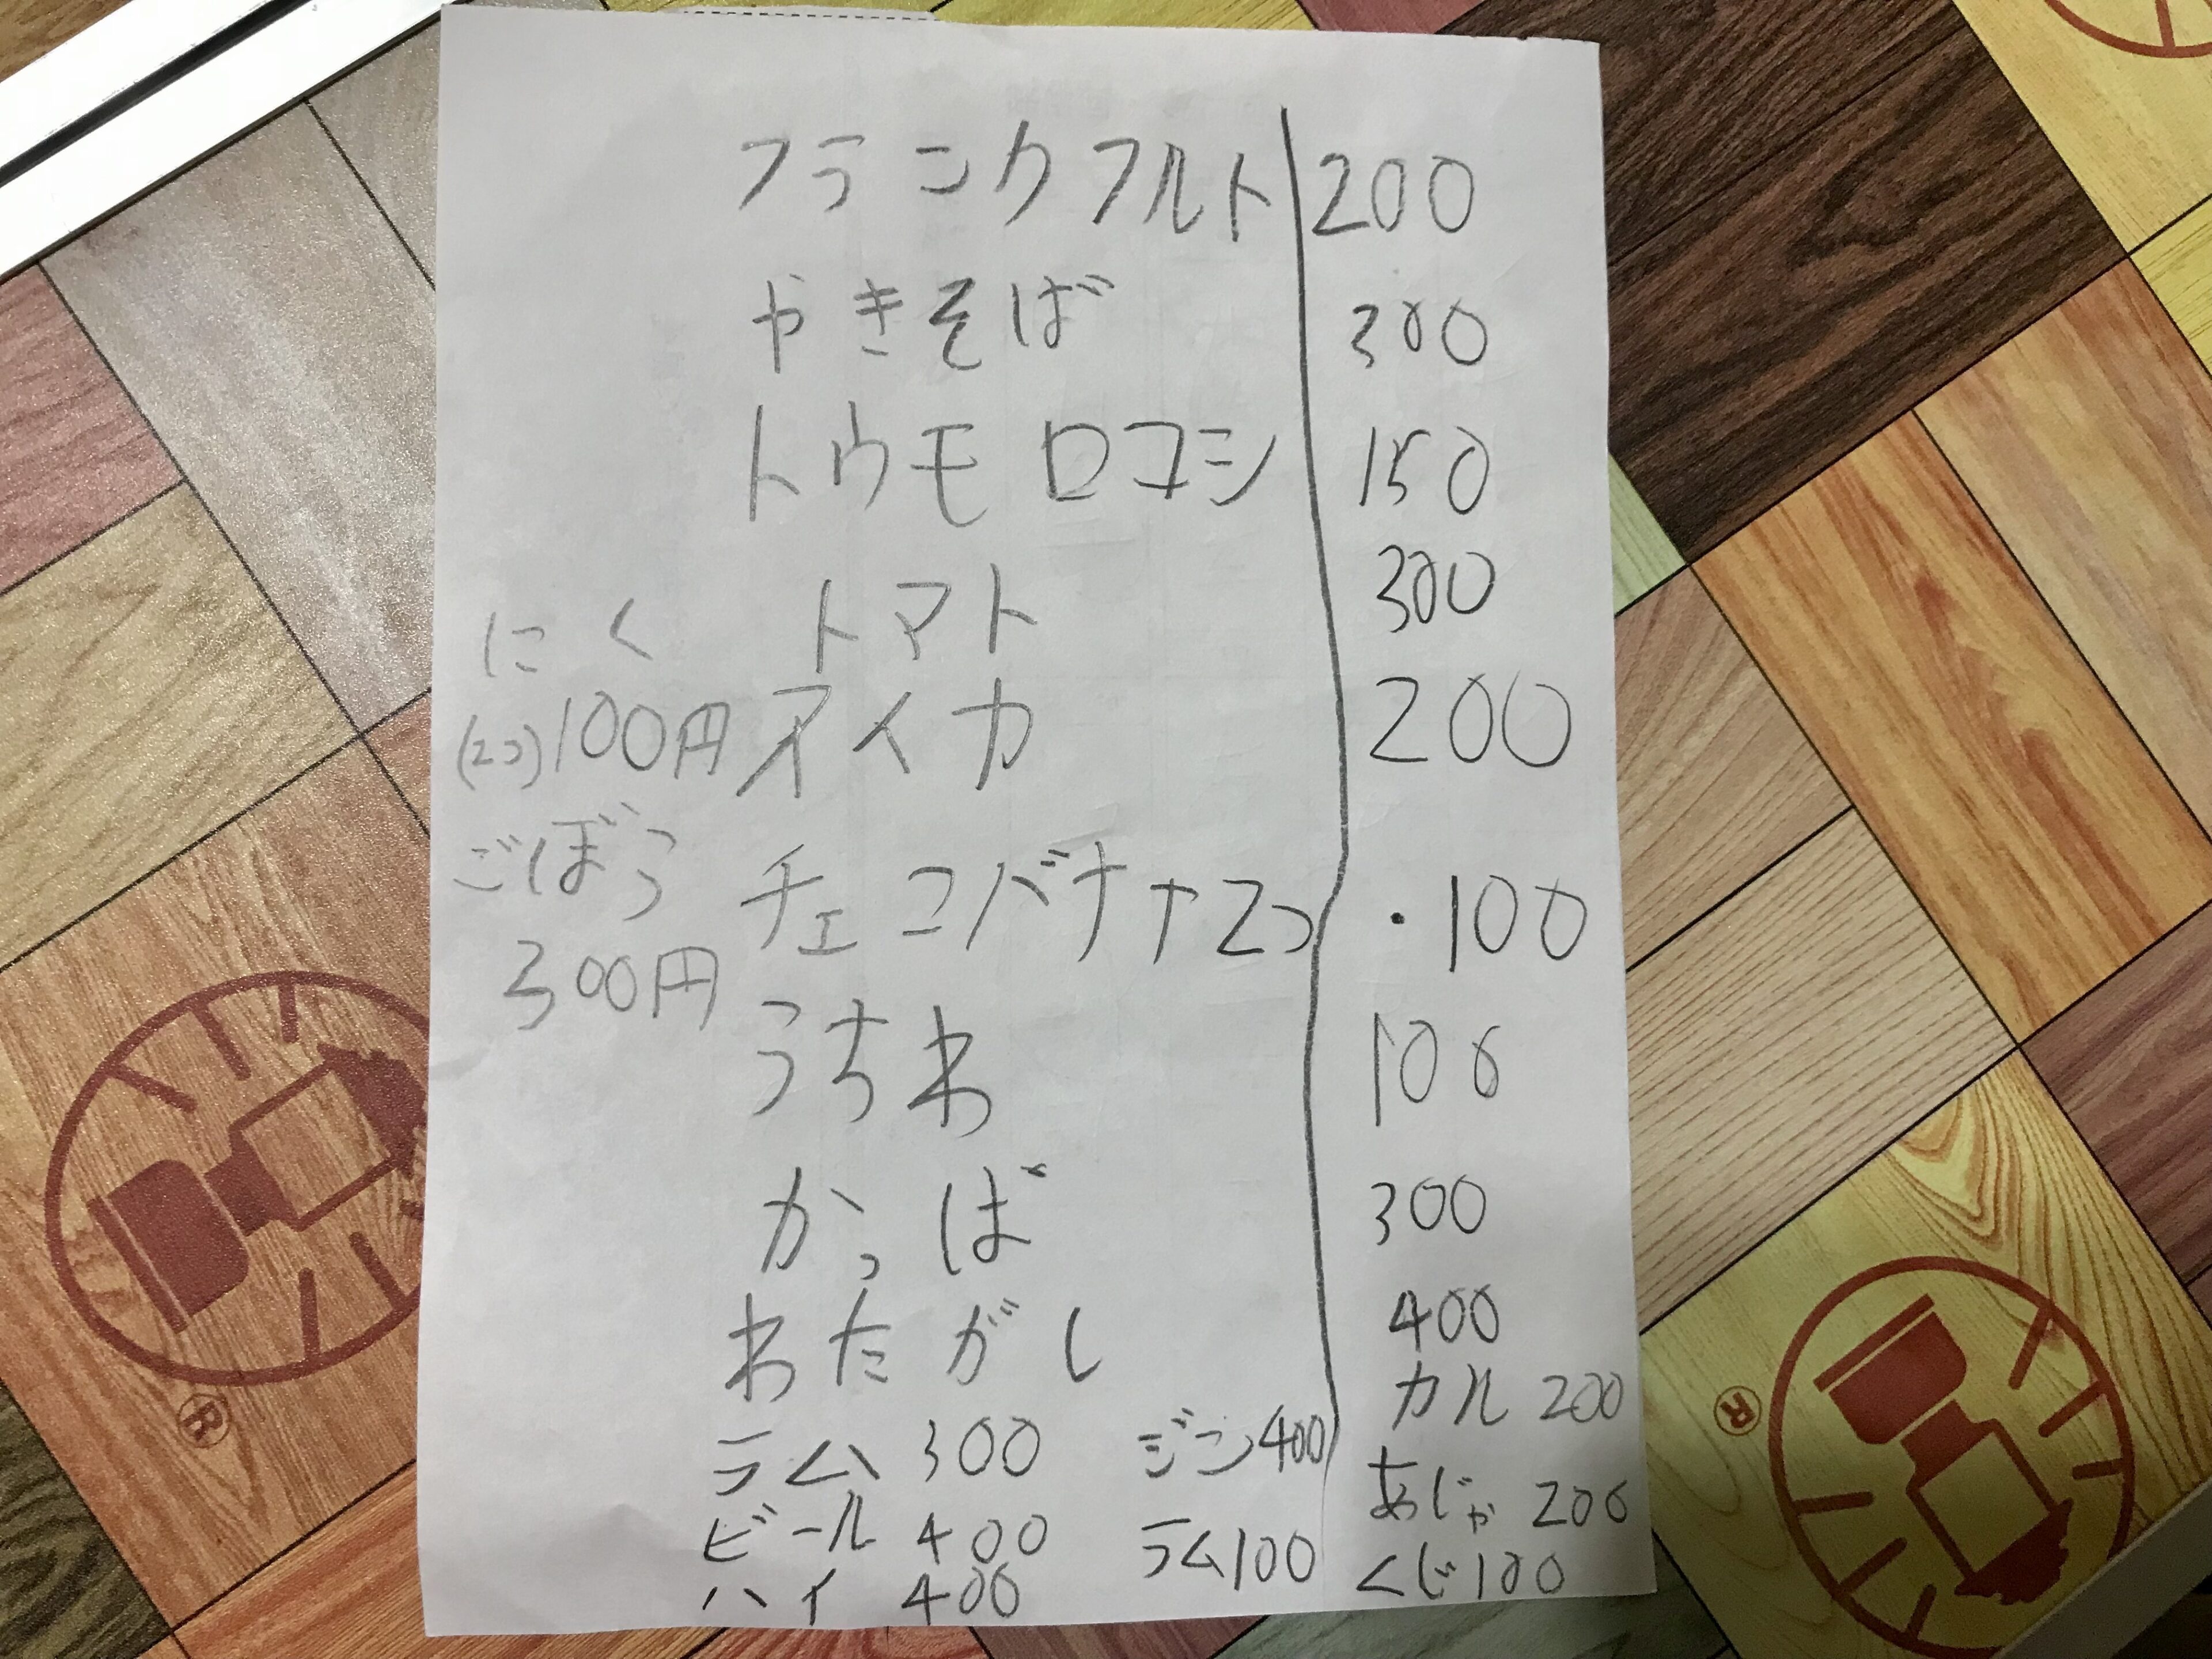 フランクフルト 200
やきそば 300
トウモロコシ 150
トマト 300
スイカ 200
チェコバナナ2つ ・100
うちわ 100
かっば 300
わたがし 400
にく
(2コ)100円
ごぼう
300円
ラム 300
ビール 400
ハイ 400
ジン400
ラム100
カル 200
あじゃ 200
くじ 100
®
®